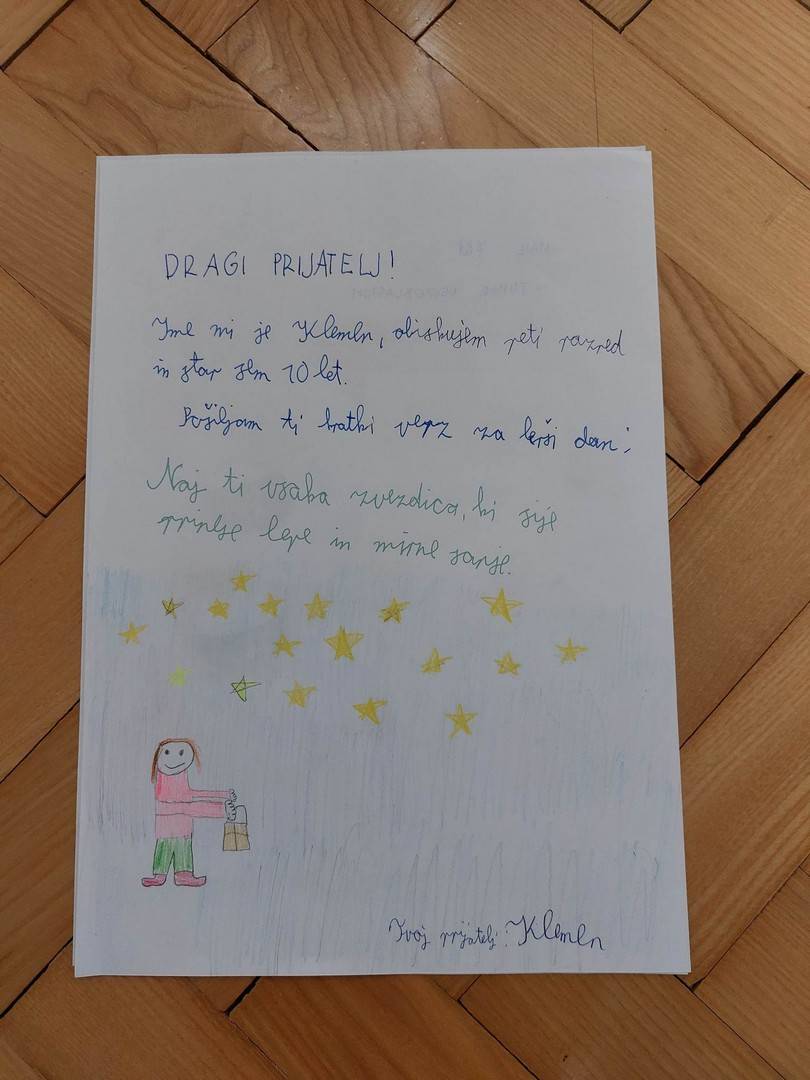 DRAGI PRIJATELJ!
Ime mi je Klemen, obiskujem peti razred
in star sem 10 let.
Pošiljam ti kratki verz za lepši dan:
Naj ti vsaka zvezdica, ki sije
prinese lepe in mirne sanje.
Tvoj prijatelj: Klemen